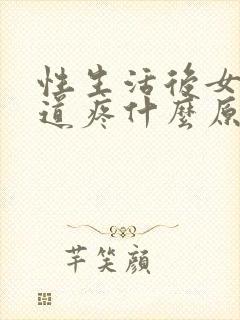 性生活後女
道疼什麼原
芊笑顔